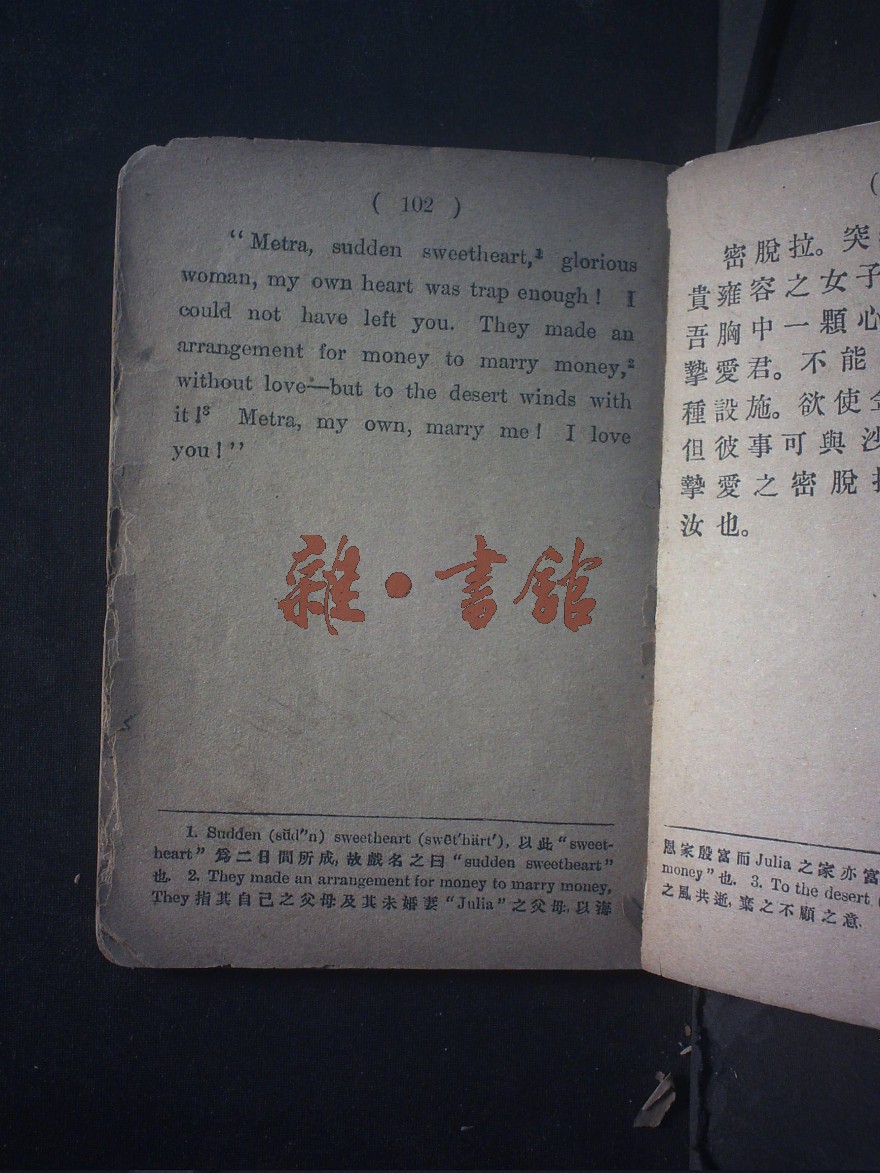 ( 102 )
“ Metra, sudden sweetheart,¹ glorious
woman, my own heart was trap enough ! I
could not have left you. They made an
arrangement for money to marry money,²
without love—but to the desert winds with
it !³ Metra, my own, marry me ! I love
you ! ”
雜・書館
1. Sudden (sŭd″n) sweetheart (swēt′härt′), 以此 “sweet-
heart” 爲二日間所成, 故戲名之曰 “sudden sweetheart”
也. 2. They made an arrangement for money to marry money,
They 指其自己之父母及其未婚妻 “Julia” 之父母, 以海
(
密脫拉。突
貴雍容之女子
吾胸中一顆心
摯愛君。不能
種設施。欲使
但彼事可與沙
摯愛之密脫
汝也。
恩家殷富而 Julia 之家亦富
money” 也. 3. To the desert
之風共逝, 棄之不顧之意.